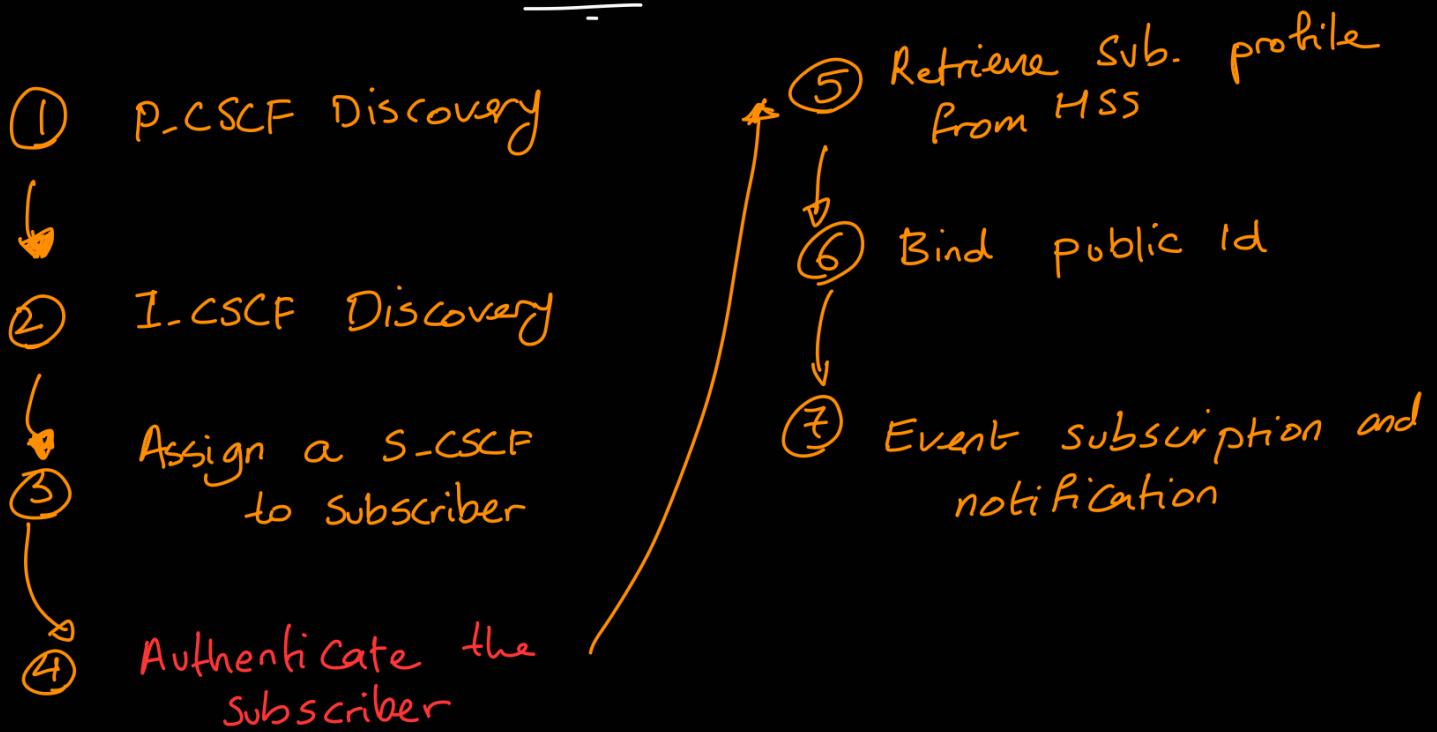 1 P_CSCF Discovery
2 I_CSCF Discovery
Assign a S_CSCF
3 to subscriber
4 Authenticate the
subscriber
5 Retrieve Sub. profile
from HSS
6 Bind public Id
7 Event subscription and
notification